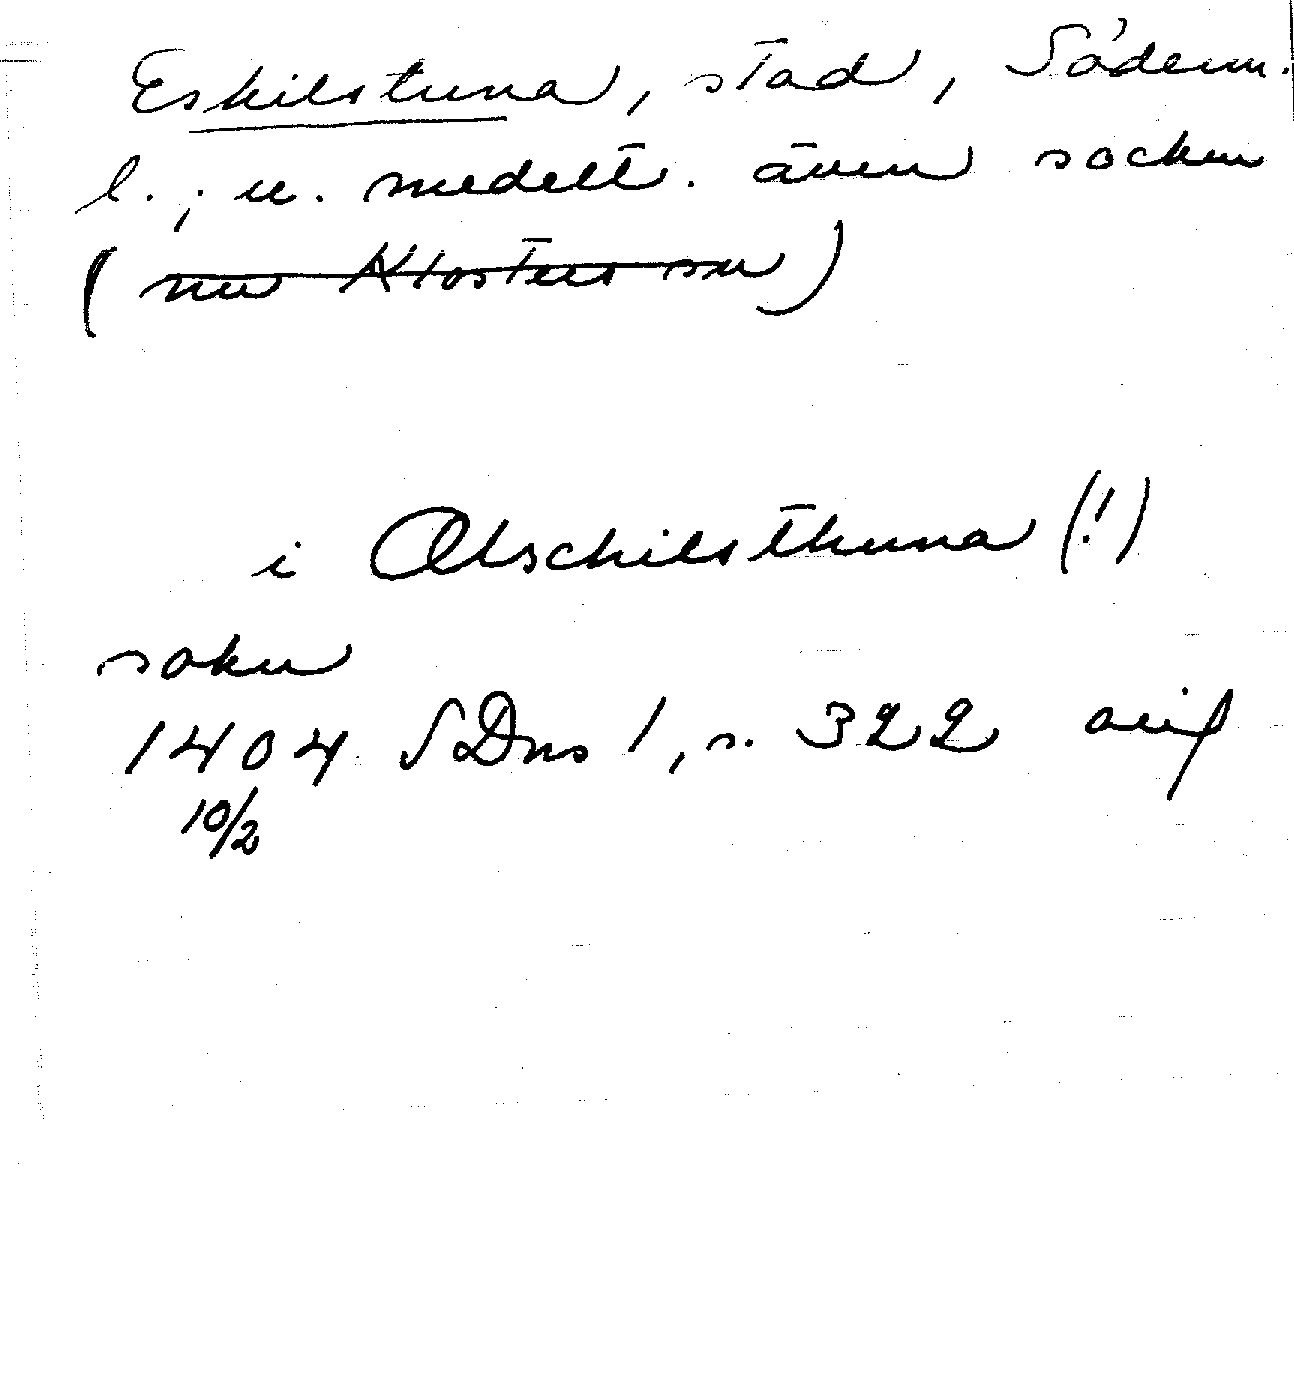 Eskilstuna, stad, Söderm.
l.; u. medelt. även socken
(nu Klosters sn)
i Æschilsthuna (!)
sokn
1404 SDns 1, s. 322 avif
10/2